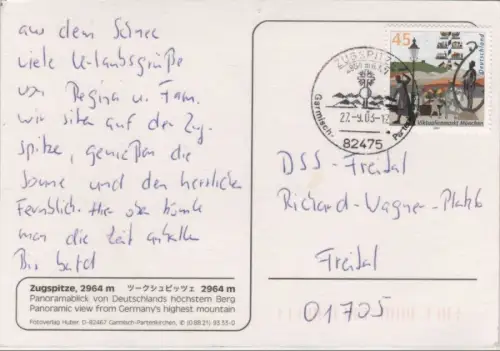 aus dem Schnee
viele Urlaubsgrüße
von Regina u. Fam.
wir sitzen auf der Zug-
spitze, genießen die
Sonne und den herrlichen
Fernblick. Hier oben könnte
man die Zeit anhalten
Bis bald
Zugspitze, 2964 m ツークシュピッツェ 2964 m
Panoramablick von Deutschlands höchstem Berg
Panoramic view from Germany's highest mountain
Fotoverlag Huber, D-82467 Garmisch-Partenkirchen, © (0 88 21) 93 33-0
ZUGSPITZE
Garmisch-
27.-9.03-12
82475
45
Deutschland
Viktualienmarkt München
DSS-Freital
Richard-Wagner-Platz 6
Freital
01705